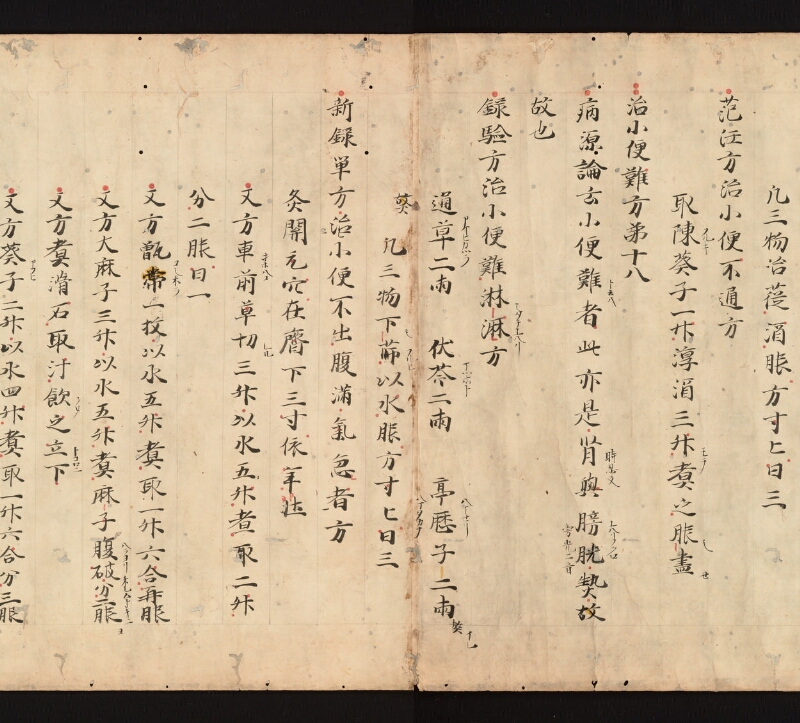 凡三物治菧酒服方寸匕日三
范汪方治小便不通方
取陳葵子一升淳酒三升煮之服盡
治小便難方第十八
病源論云小便難者此亦是腎與膀胱熱故
故也
録驗方治小便難淋瀝方
通草二兩 伏苓二兩 亭歷子二兩
凡三物下篩以水服方寸匕日三
新録單方治小便不出腹滿氣急者方
灸關元穴在臍下三寸依年壮
又方車前草切三升以水五升煮取二升
分二服日一
又方甑帶一枚以水五升煮取一升六合再服
又方大麻子三升以水五升煮麻子腹破分二服
又方煮滑石取汁飲之立下
又方葵子二升以水四升煮取一升六合分三服